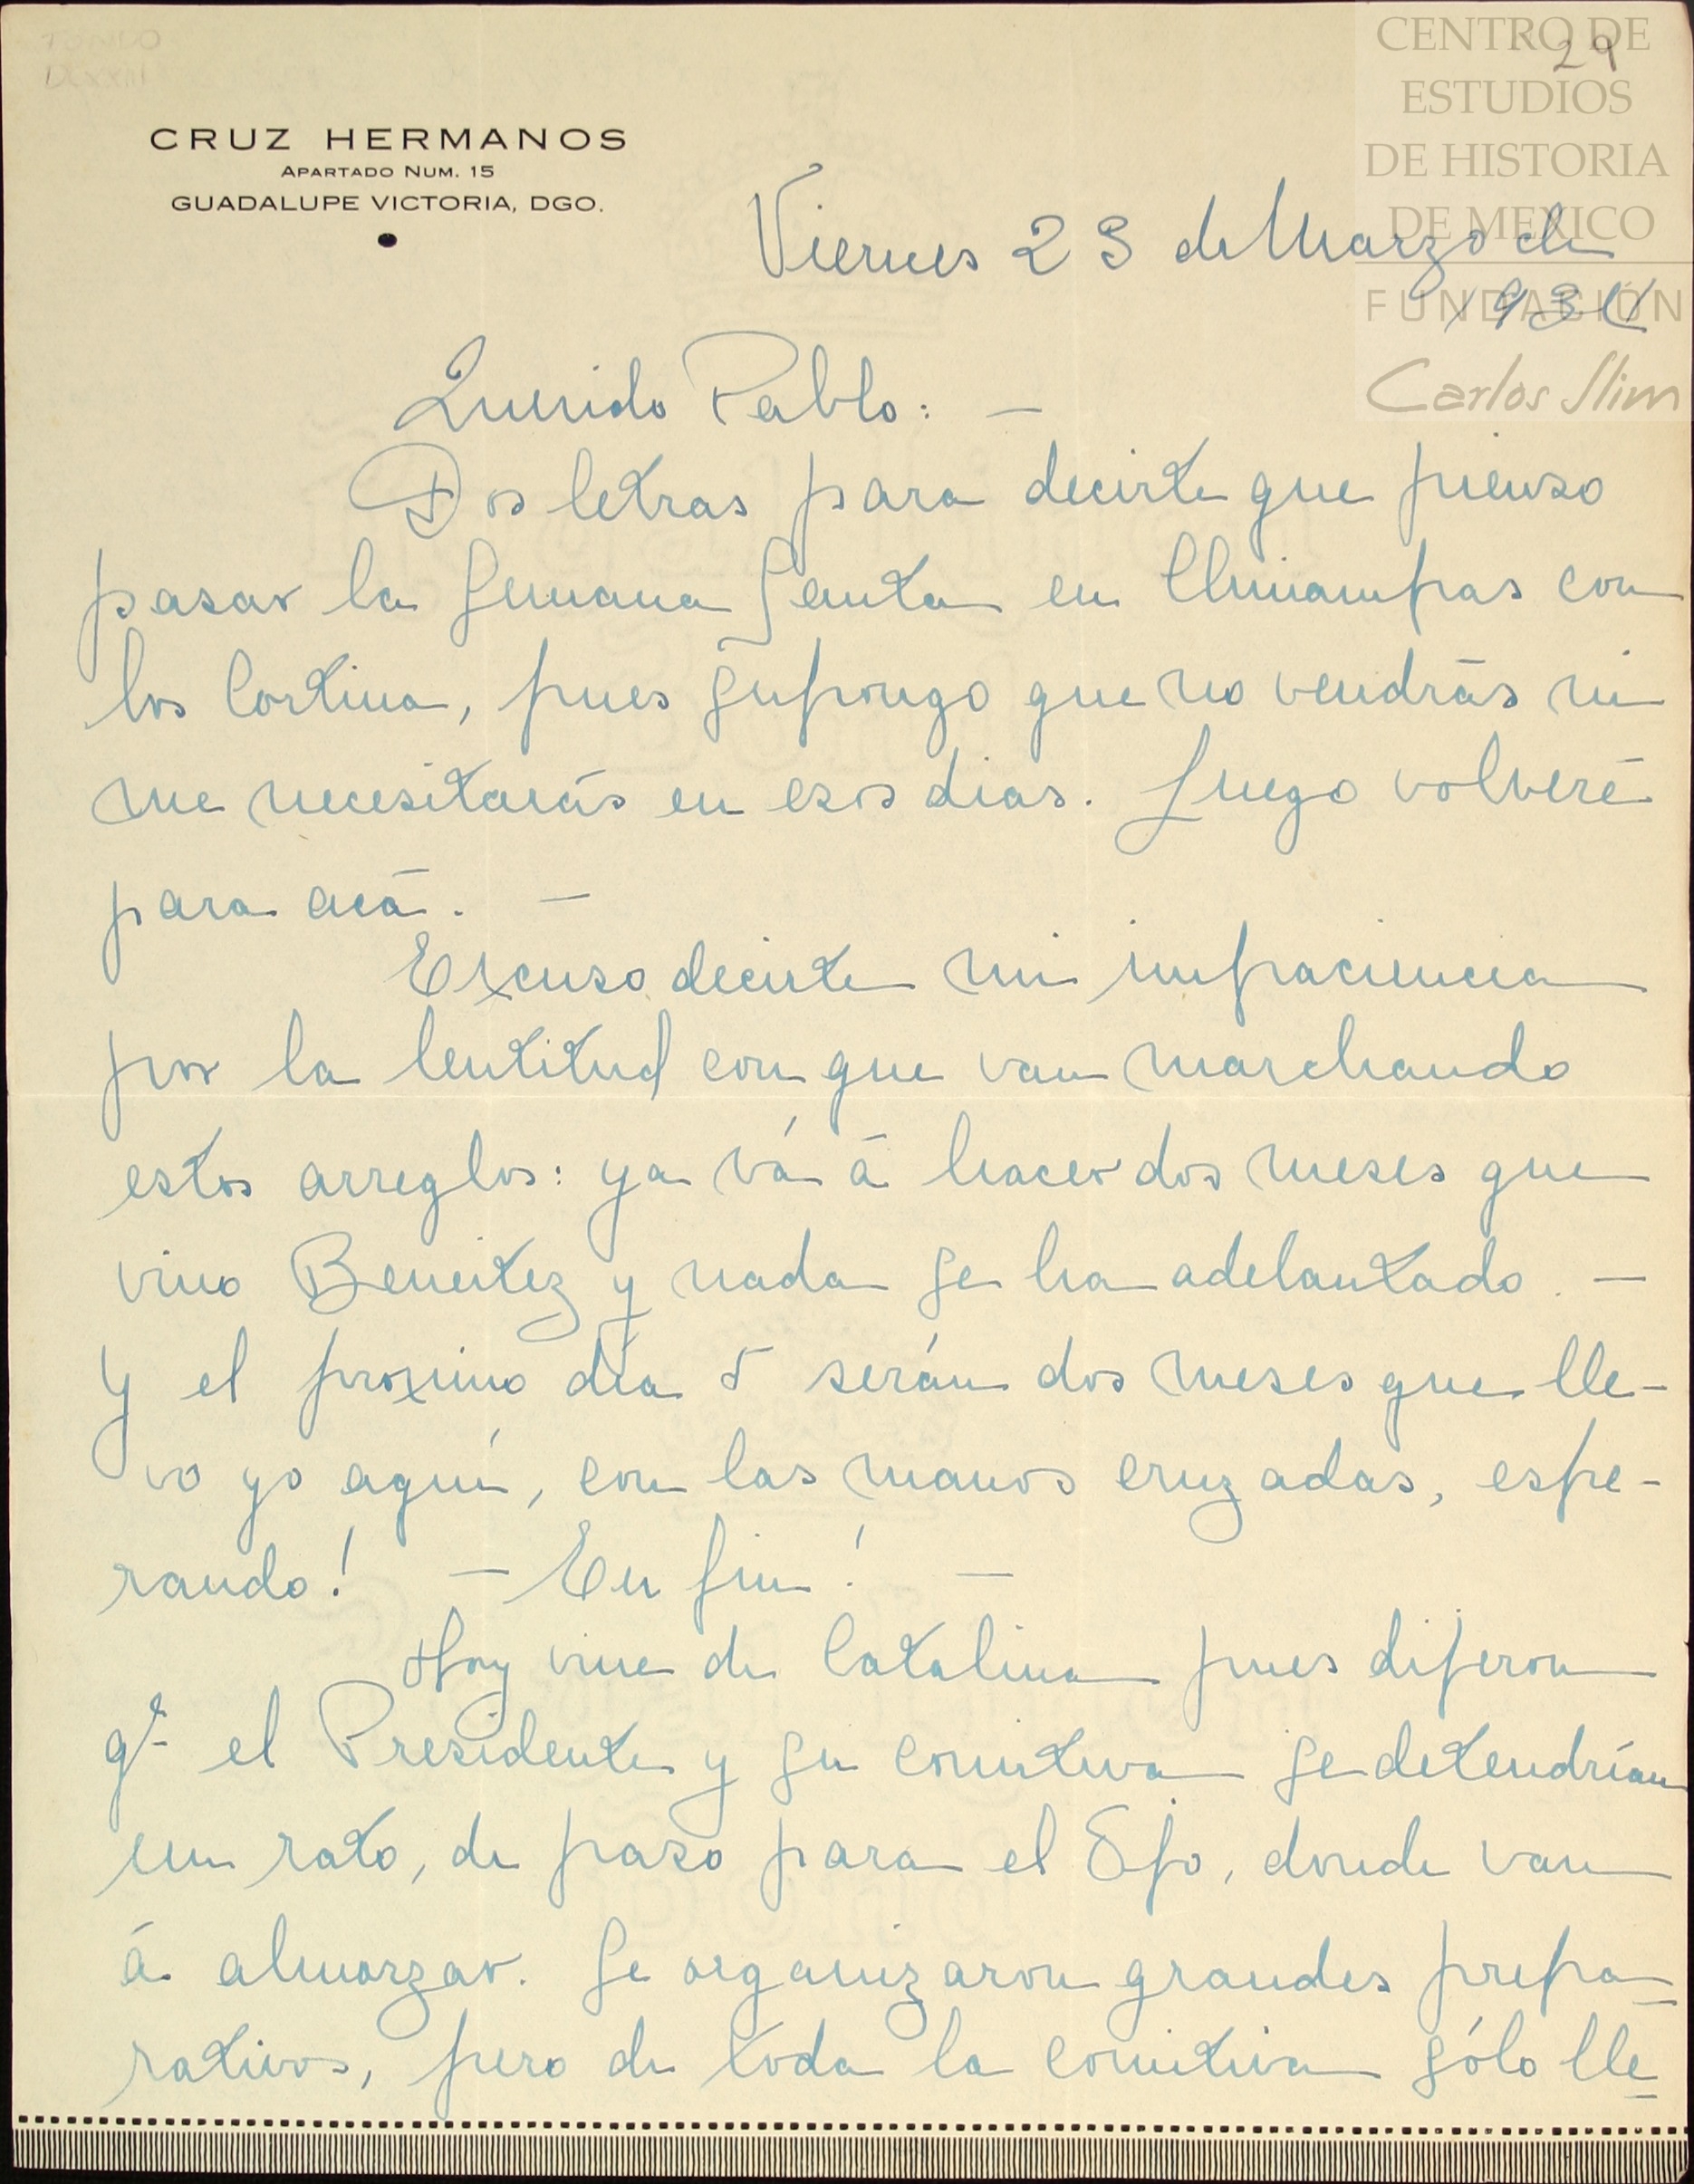 TOMO
29
CENTRO DE
ESTUDIOS
DE HISTORIA
DE MEXICO
FUNDACIÓN
Carlos Slim
CRUZ HERMANOS
APARTADO NUM. 15
GUADALUPE VICTORIA, DGO.
Viernes 23 de Marzo de
1934
Querido Pablo: —
Dos letras para decirte que pienso
pasar la Semana Santa en Chinampas con
los Cortina, pues supongo que no vendrás ni
me necesitarás en esos dias. Luego volveré
para acá. —
Excuso decirte mi impaciencia
por la lentitud con que van marchando
estos arreglos: ya vá á hacer dos meses que
vino Beneitez y nada se ha adelantado. —
Y el proximo día 5 serán dos meses que lle-
vo yo aquí, con las manos cruzadas, espe-
rando! — En fin! —
Hoy vine de Catalina pues dijeron
qe el Presidente y su comitiva se detendrían
un rato, de paso para el donde van
á almorzar. Se organizaron grandes prepa-
rativos, pero de toda la comitiva sólo lle-